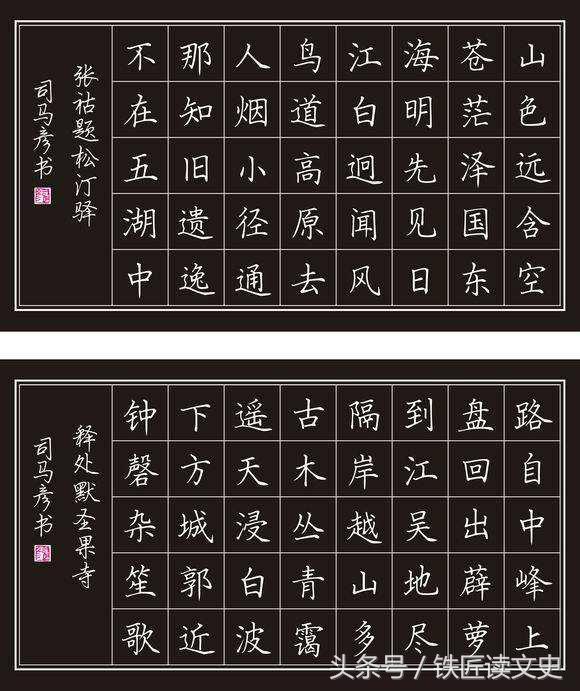 山色远含空
苍茫泽国东
海明先见日
江白迥闻风
鸟道高原去
人烟小径通
那知旧遗逸
不在五湖中
张祜题松汀驿
司马彦书
路自中峰上
盘回出薜萝
到江吴地尽
隔岸越山多
古木丛青霭
遥天浸白波
下方城郭近
钟磬杂笙歌
释处默圣果寺
司马彦书
头条号 / 铁匠读文史